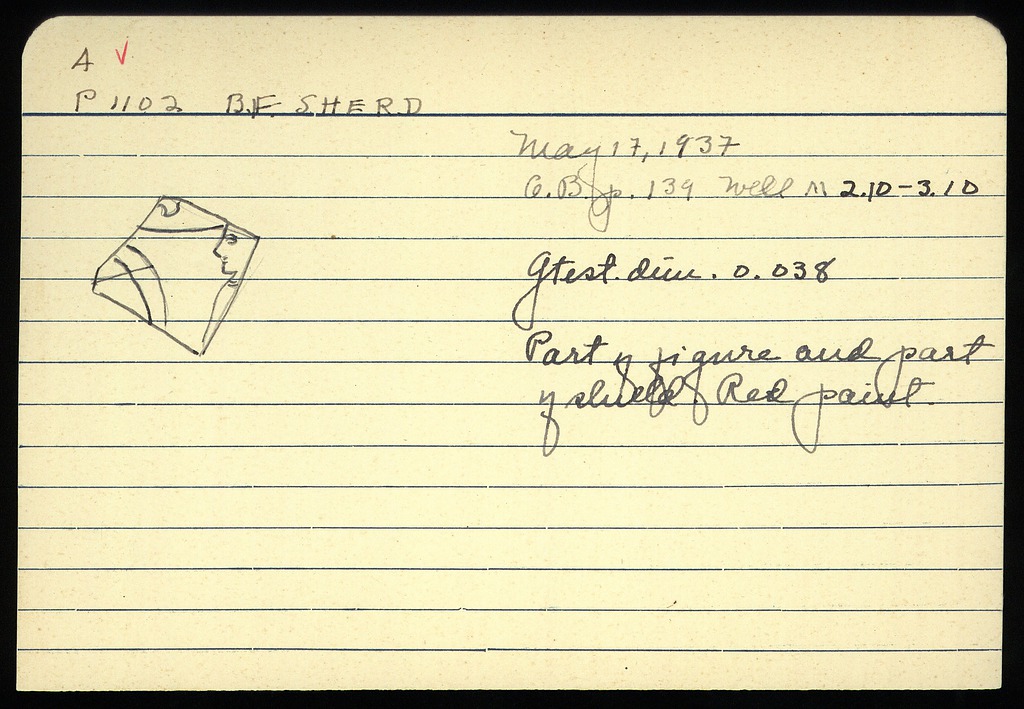 A ✓
P 1102 B.F. SHERD
May 17, 1937
G.B. p. 139 Well M 2.10-3.10
Gtest. dim. 0.038
Part of figure and part
of shield. Red paint.